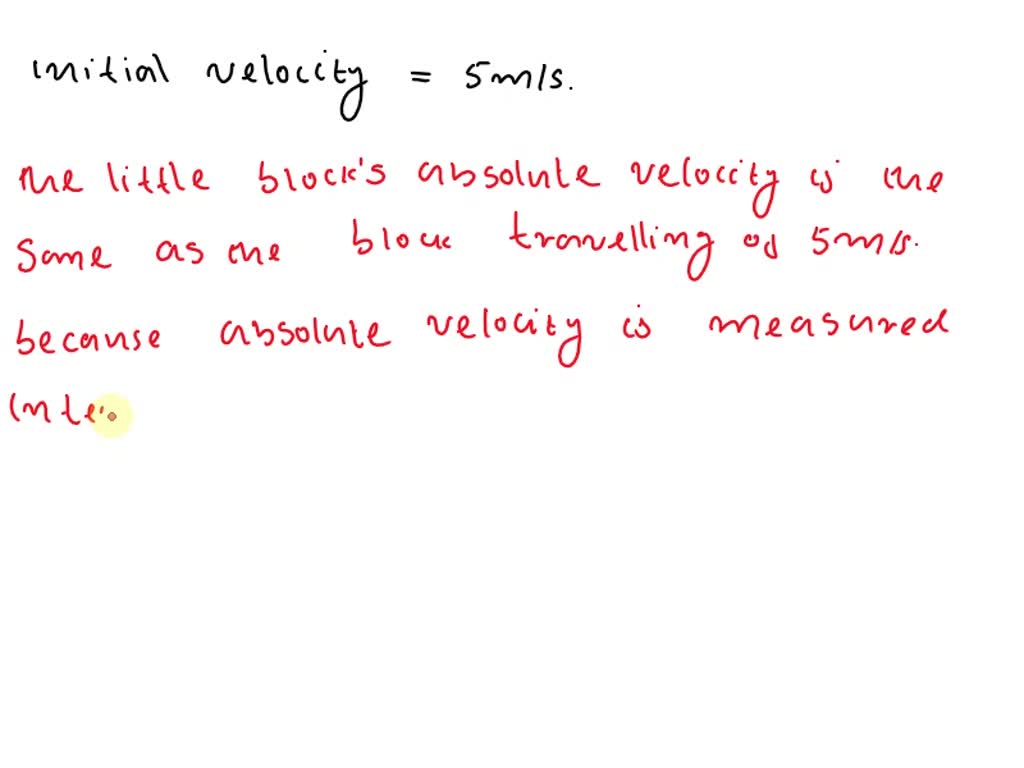 initial velocity = 5m/s.
the little block's absolute velocity is the
same as the block travelling of 5m/s.
because absolute velocity is measured
inte